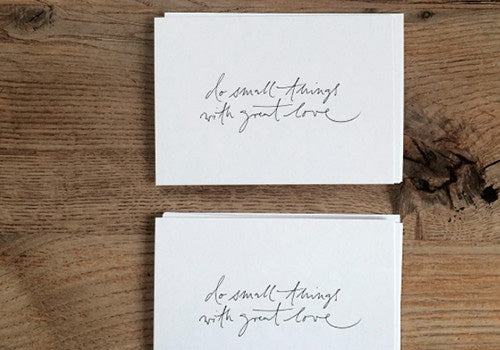 do small things
with great love
do small things
with great love